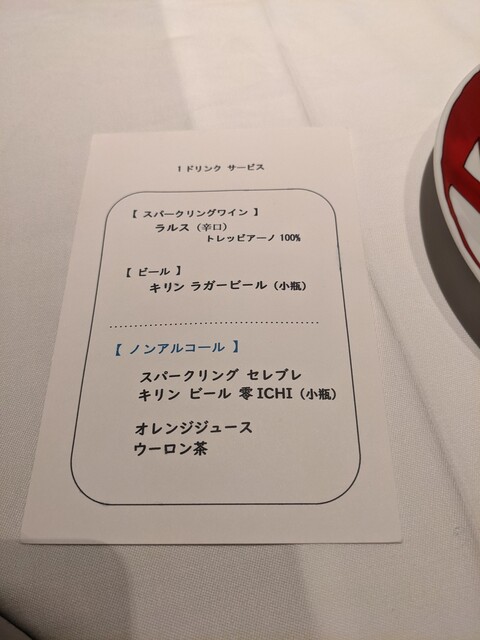 1ドリンク サービス
【 スパークリングワイン 】
ラルス（辛口）
トレッビアーノ 100%
【 ビール 】
キリン ラガービール（小瓶）
【 ノンアルコール 】
スパークリング セレブレ
キリン ビール 零ICHI（小瓶）
オレンジジュース
ウーロン茶